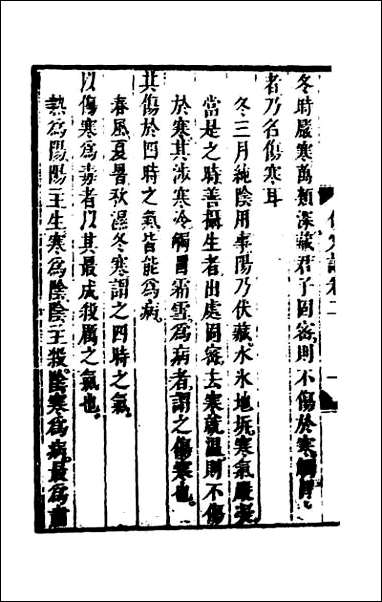 傷寒論卷二 一
冬時嚴寒萬類深藏君子固密則不傷於寒觸冒
者乃名傷寒耳
冬三月純陰用事陽乃伏藏水氷地坼寒氣嚴凝
當是之時善攝生者出處固密去寒就溫則不傷
於寒其涉寒冷觸冒霜雪爲病者謂之傷寒也
其傷於四時之氣皆能爲病
春風夏暑秋濕冬寒謂之四時之氣
以傷寒爲毒者以其最成殺厲之氣也
熱爲陽陽主生寒爲陰陰主殺陰寒爲病最爲